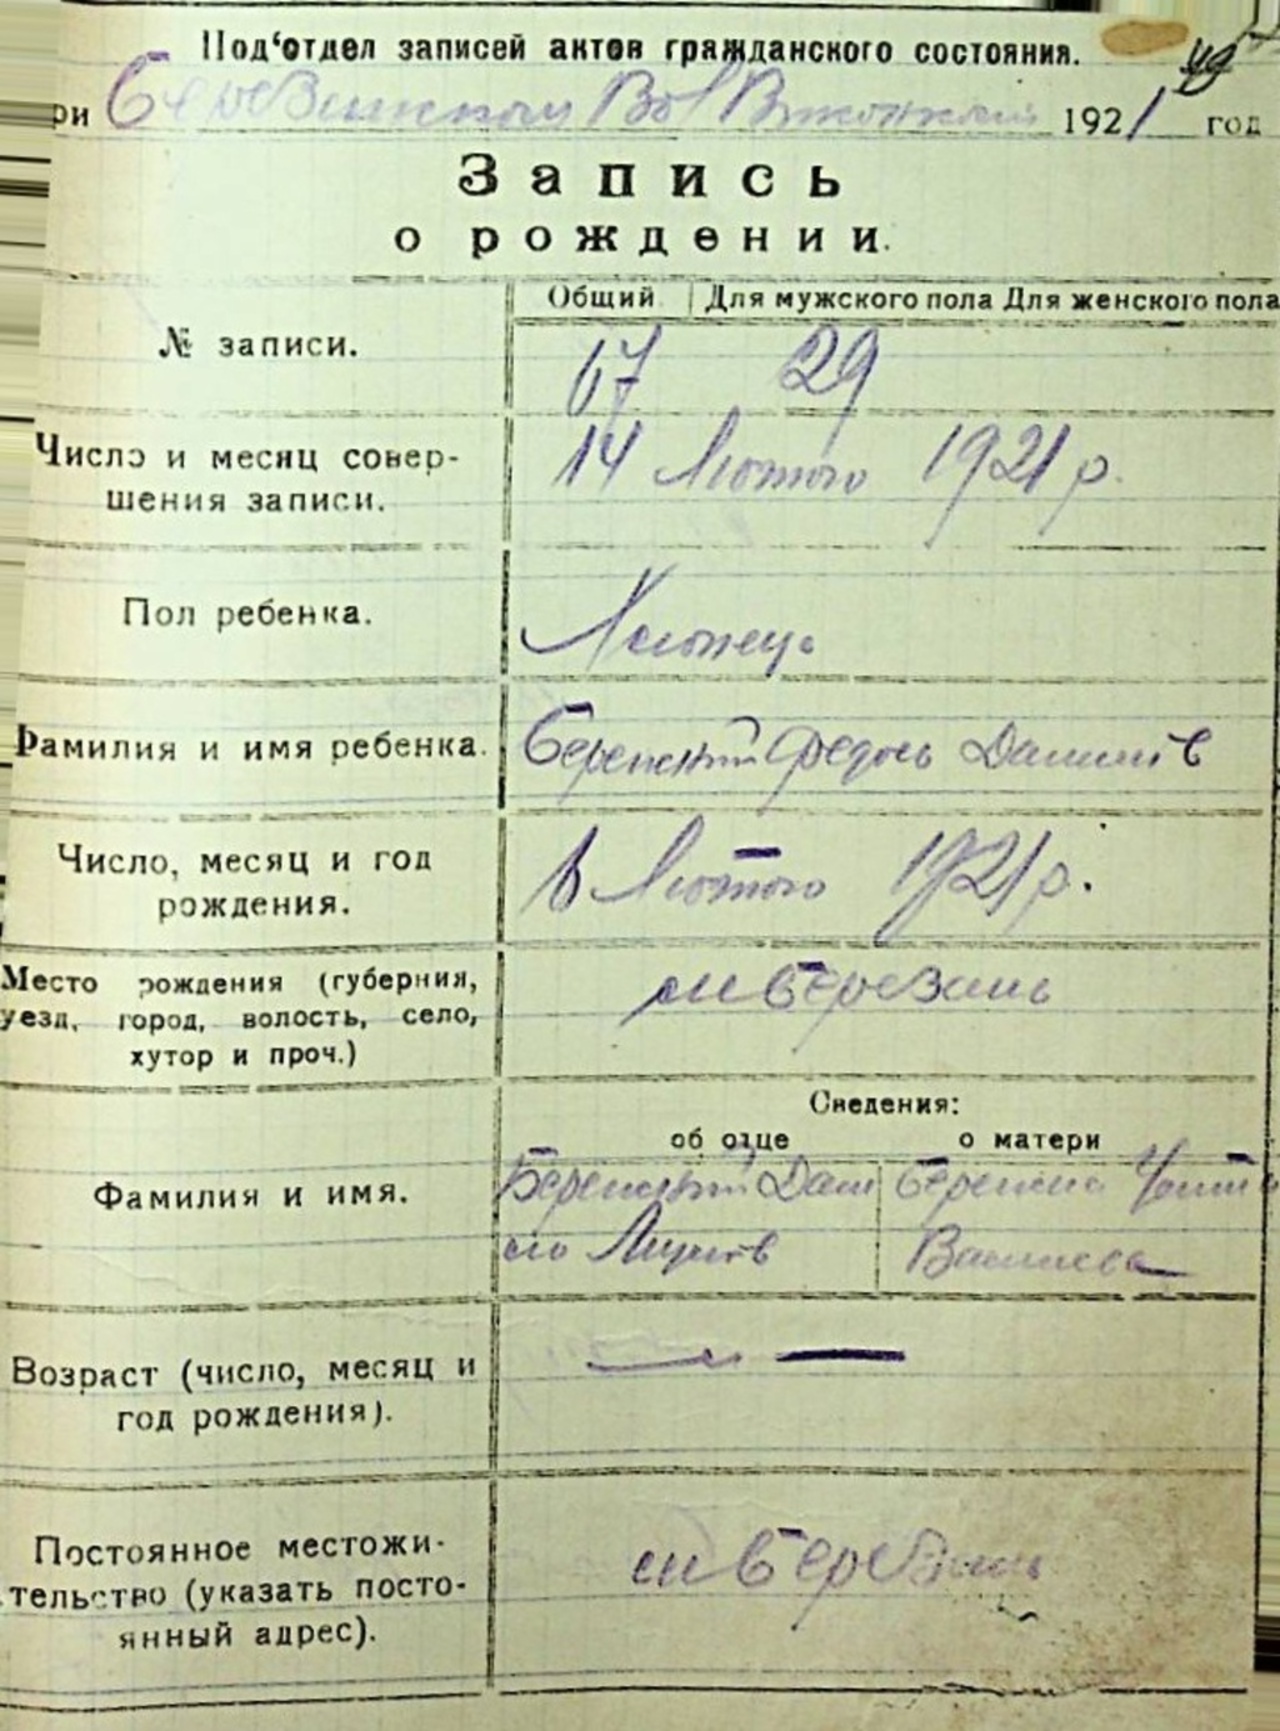 Под‘отдел записей актов гражданского состояния.
ри Березанском Вол Виконкоми 1921 год
Запись
о рождении.
Общий Для мужского пола Для женского пола
№ записи. 67 29
Число и месяц совер-
шения записи. 14 Лютого 1921 р.
Пол ребенка. Хлопець
Фамилия и имя ребенка. Федось Данилів
Число, месяц и год
рождения. Лютого 1921 р.
Место рождения (губерния,
уезд, город, волость, село,
хутор и проч.) м Березань
Сведения:
об отце о матери
Фамилия и имя. Дани
ло
Возраст (число, месяц и
год рождения).
Постоянное местожи-
тельство (указать посто-
янный адрес). м Березань